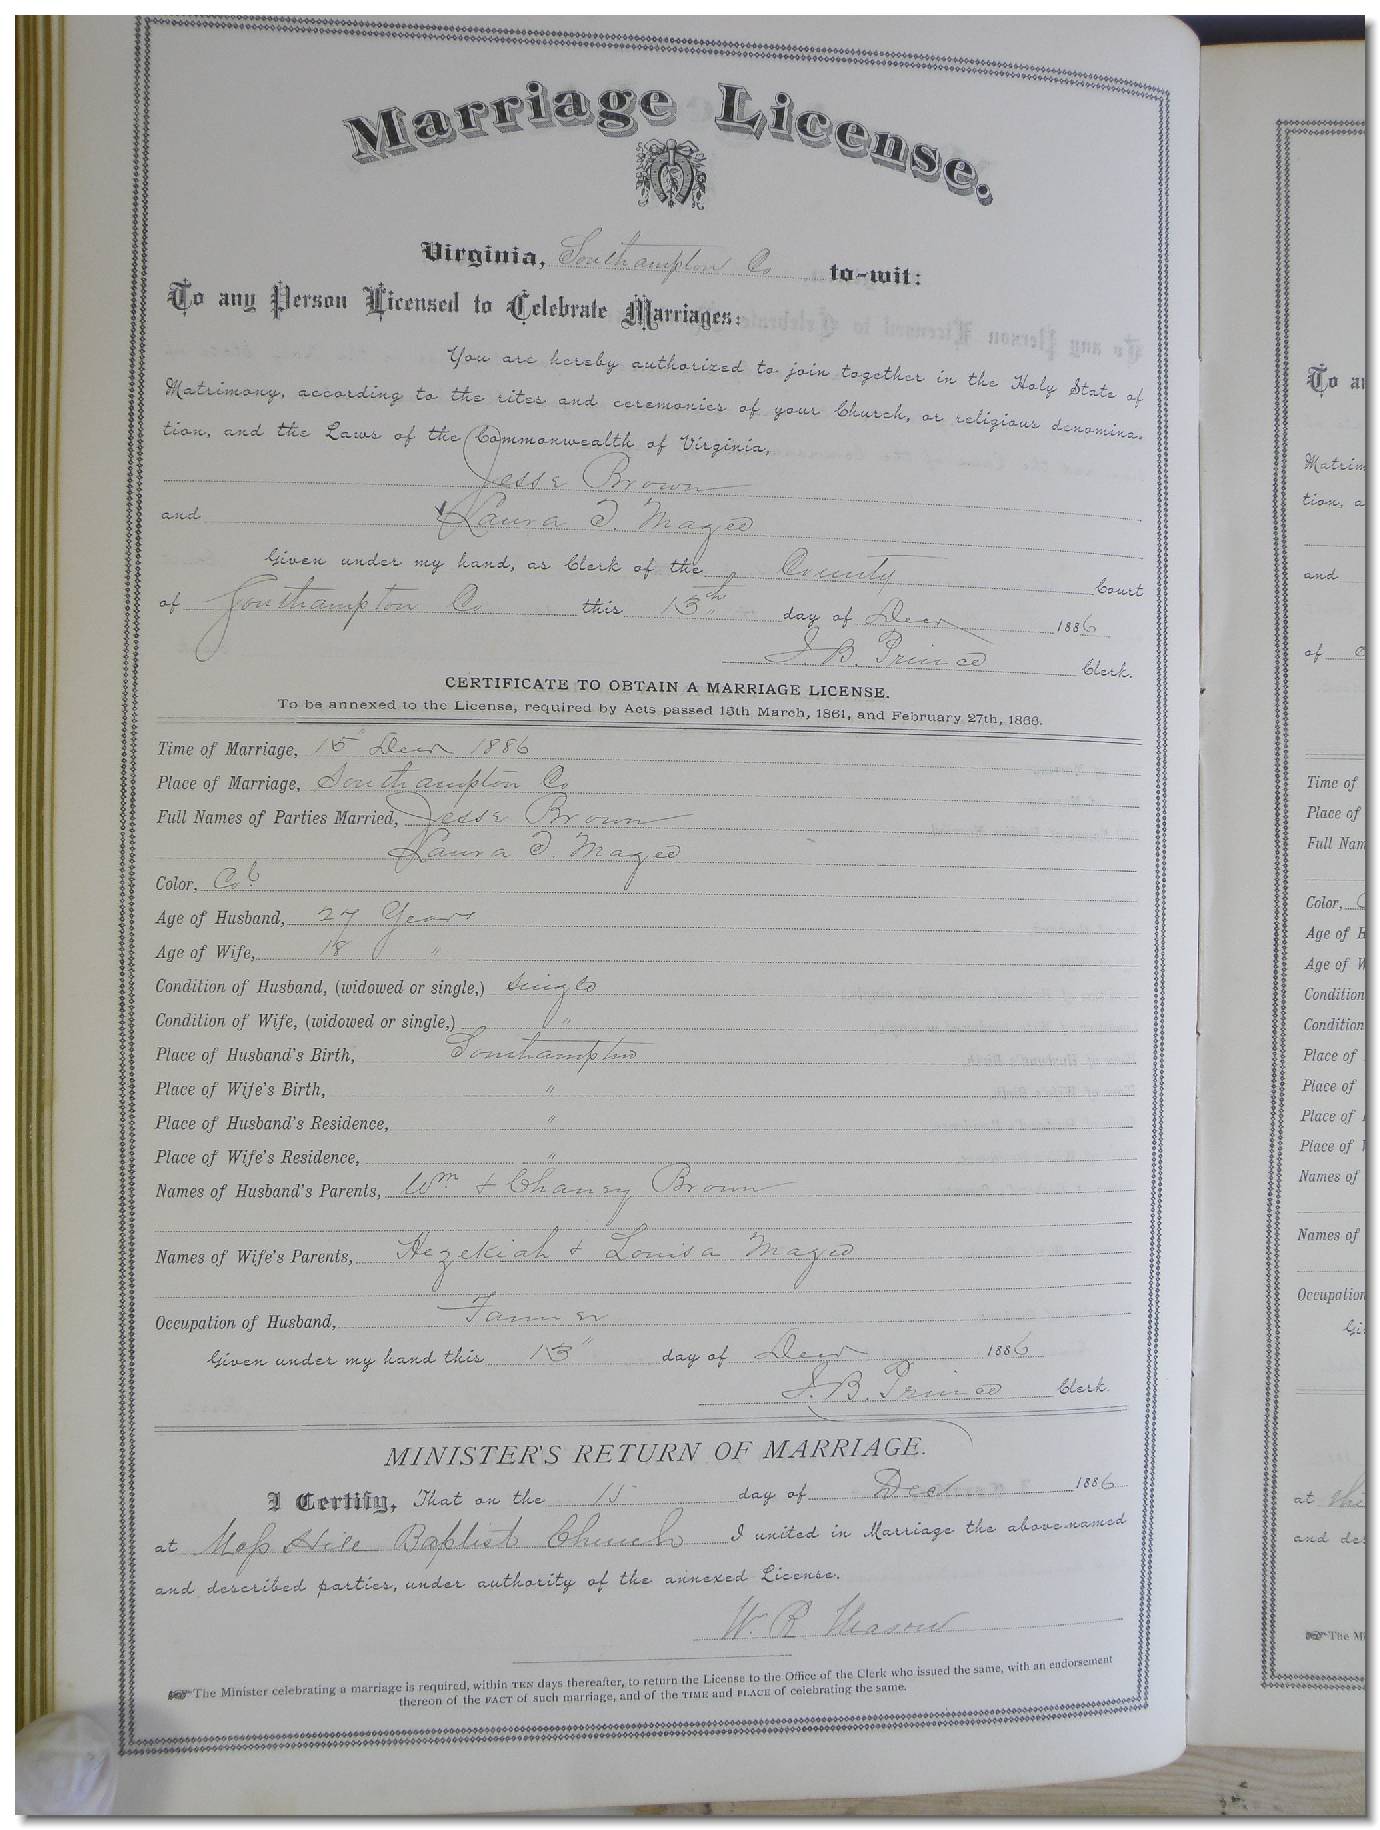 Marriage License.
Virginia, Southampton Co to-wit:
To any Person Licensed to Celebrate Marriages:
You are hereby authorized to join together in the Holy State of
Matrimony, according to the rites and ceremonies of your Church, or religious denomina-
tion, and the Laws of the Commonwealth of Virginia,
Jesse Brown
and Laura D. Magee
Given under my hand, as Clerk of the County Court
of Southampton Co this 13th day of Decr 1886
J. B. Prince Clerk.
CERTIFICATE TO OBTAIN A MARRIAGE LICENSE.
To be annexed to the License, required by Acts passed 15th March, 1861, and February 27th, 1866.
Time of Marriage, 15" Decr 1886
Place of Marriage, Southampton Co
Full Names of Parties Married, Jesse Brown
Laura D. Magee
Color, Cold
Age of Husband, 27 Years
Age of Wife, 18 "
Condition of Husband, (widowed or single,) Single
Condition of Wife, (widowed or single,) "
Place of Husband's Birth, Southampton
Place of Wife's Birth, "
Place of Husband's Residence, "
Place of Wife's Residence, "
Names of Husband's Parents, Wm + Chaney Brown
Names of Wife's Parents, Hezekiah + Louisa Magee
Occupation of Husband, Farmer
Given under my hand this 13" day of Decr 1886
J. B. Prince Clerk.
MINISTER'S RETURN OF MARRIAGE.
I Certify, That on the 15 day of Dec 1886
at Hill Baptist Church I united in Marriage the above-named
and described parties, under authority of the annexed License.
W. R.
The Minister celebrating a marriage is required, within TEN days thereafter, to return the License to the Office of the Clerk who issued the same, with an endorsement
thereon of the FACT of such marriage, and of the TIME and PLACE of celebrating the same.
To a
Matrim
tion, a
and
of
Time of
Place of
Full Nam
Color,
Age of H
Age of W
Condition
Condition
Place of
Place of
Place of
Place of
Names of
Names of
Occupation
Gi
at
and des
The M